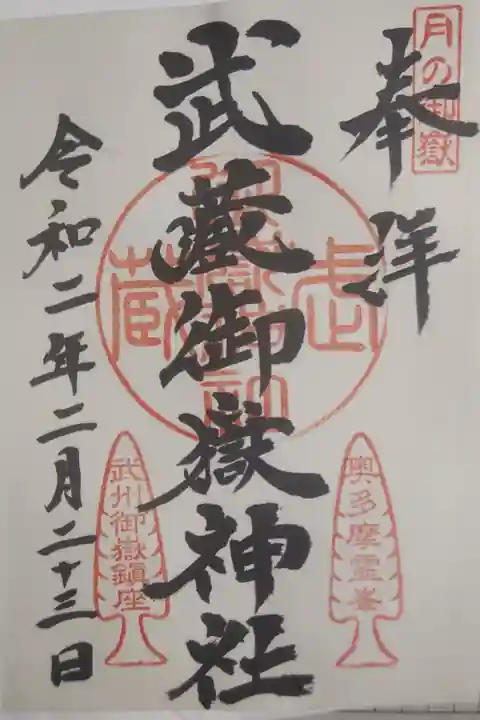 月の御嶽
奉拝
武蔵御嶽神社
奥多摩霊峯
武州御嶽鎮座
令和二年二月二十三日